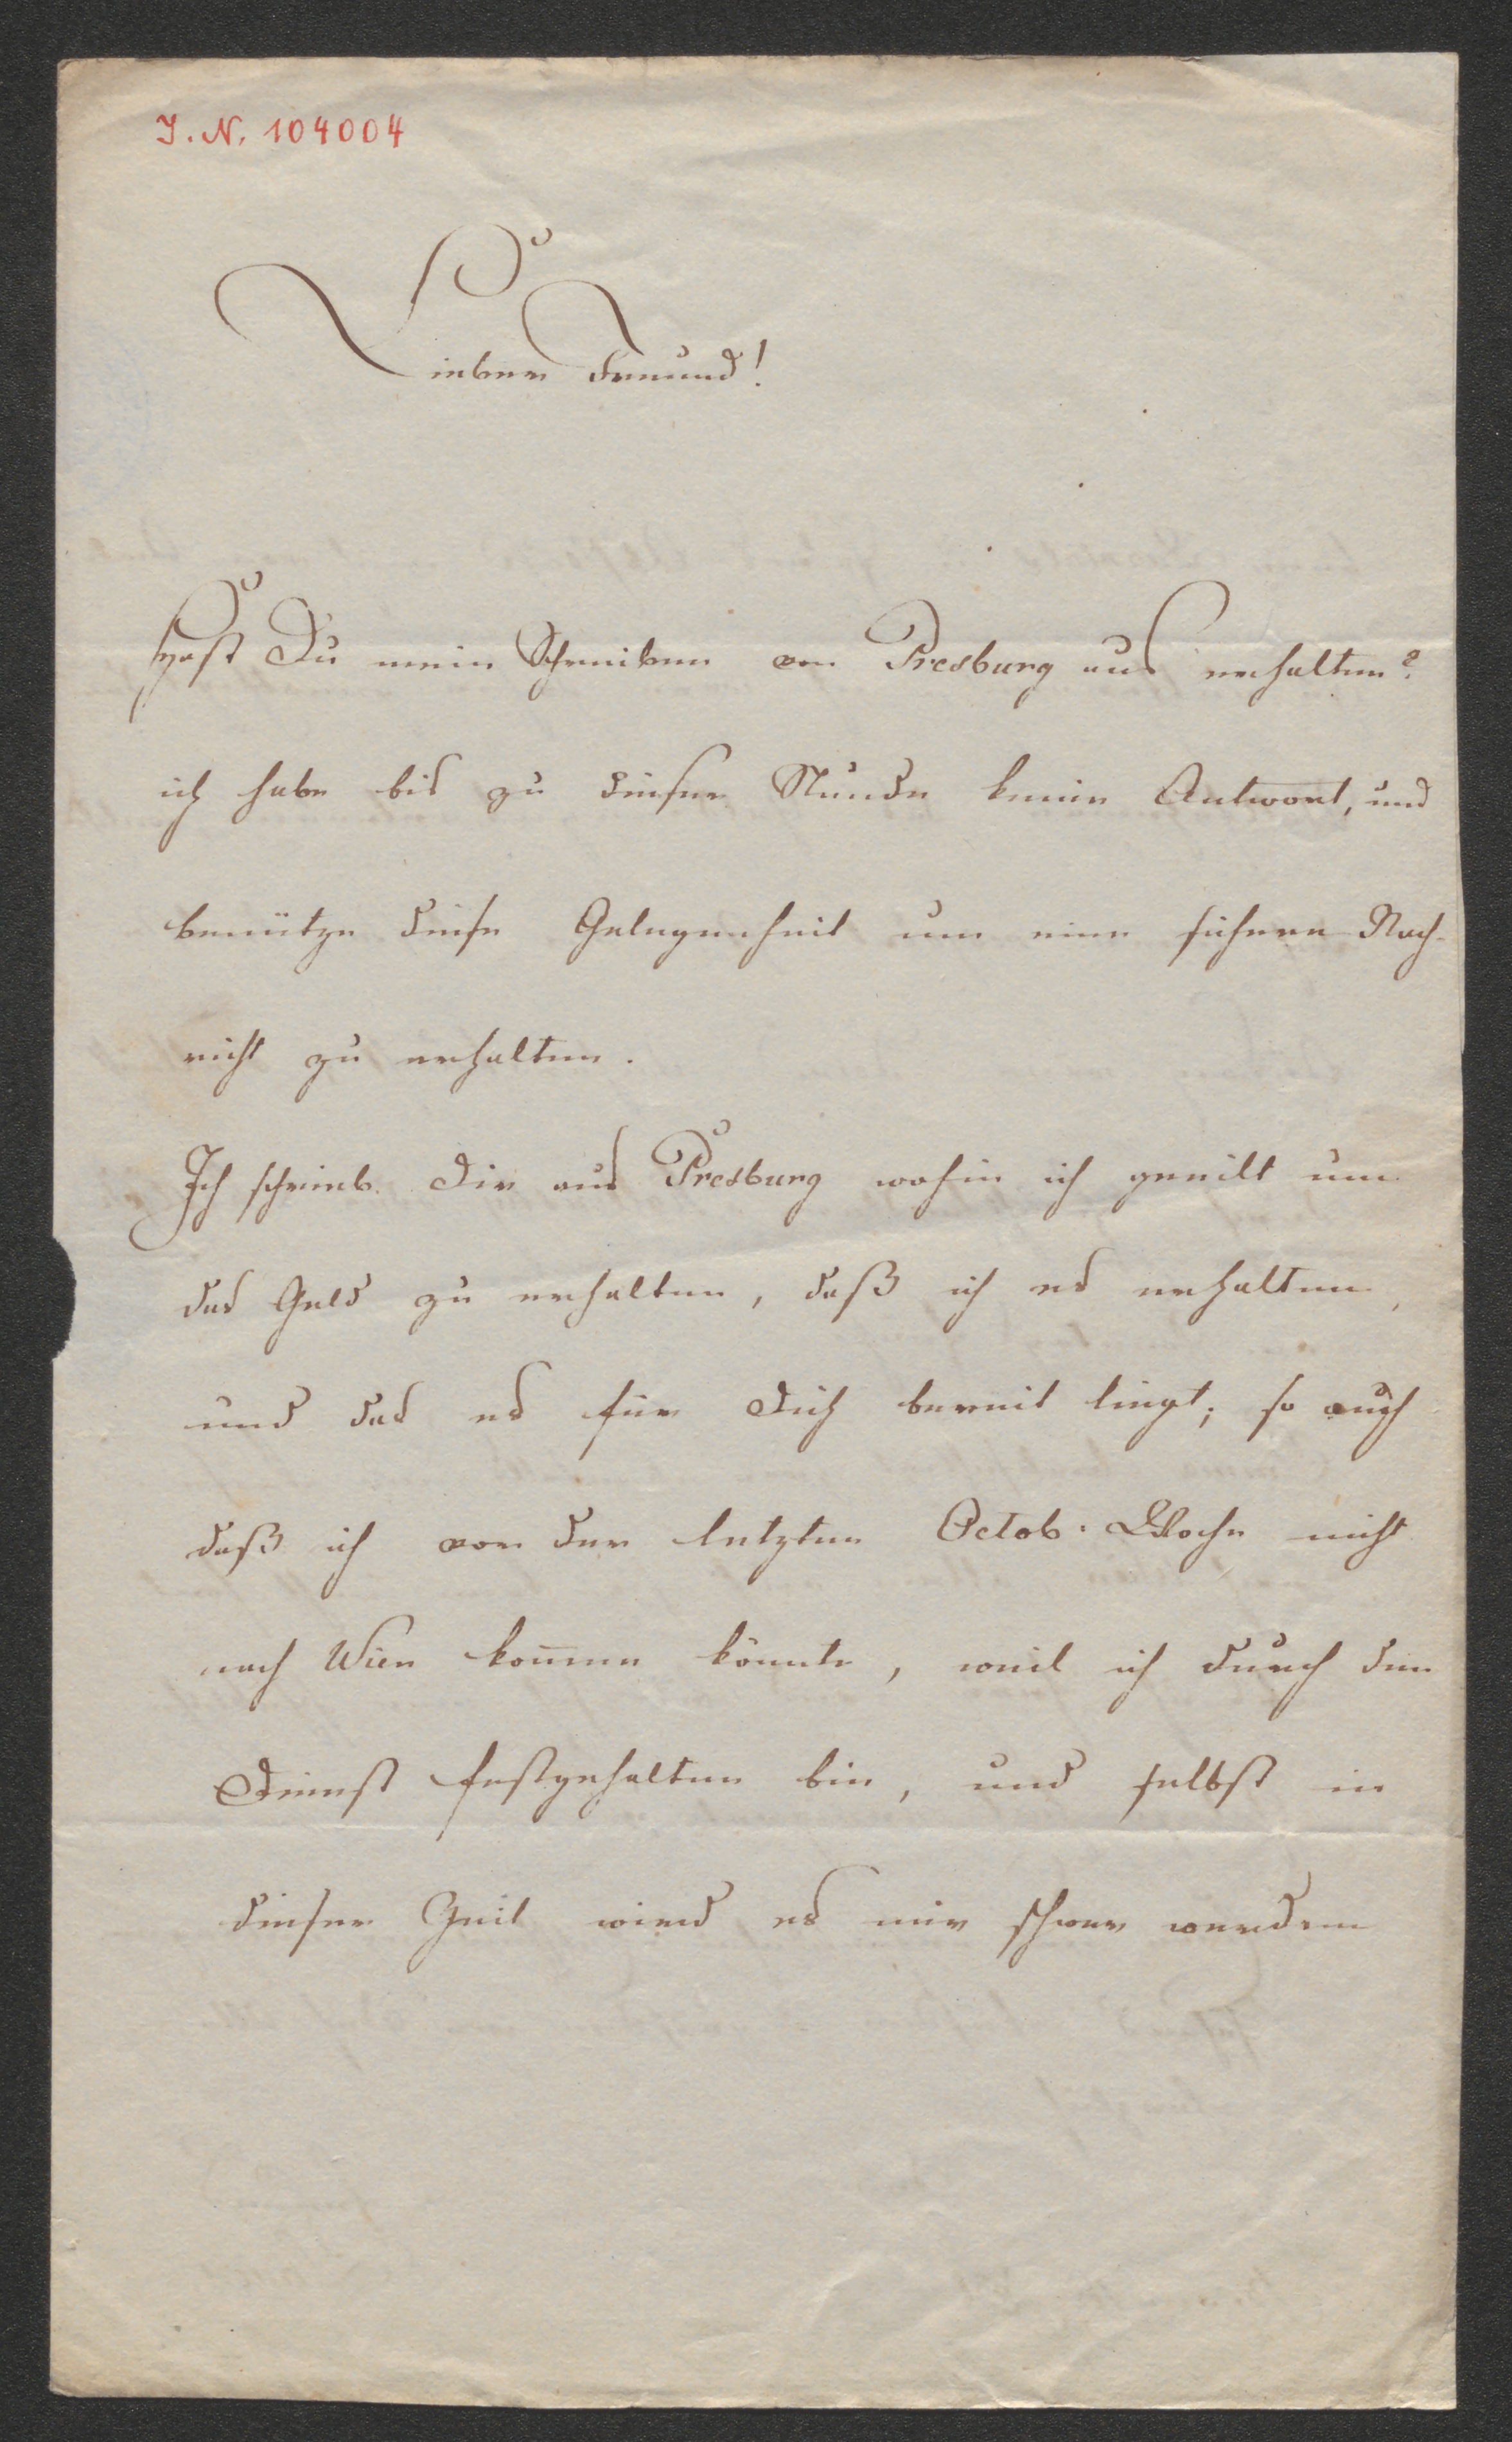 I. N. 104004
Lieber Freund!
Hast Du mein Schreiben von Presburg aus erhalten?
ich habe bis zu dieser Stunde keine Antwort, und
benütze diese Gelegenheit um eine sichere Nach-
richt zu erhalten.
Ich schrieb Dir aus Presburg wohin ich geeilt um
das Geld zu erhalten, daß ich es erhalten,
und das es für Dich bereit liegt; so auch
daß ich vor der letzten Octob. Woche nicht
nach Wien kom̄en könnte, weil ich durch den
Dienst festgehalten bin, und selbst in
dieser Zeit wird es mir schwer werden